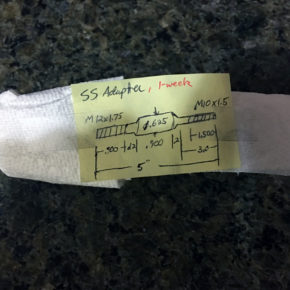 SS Adapter, 1-week
M12x1.75
M10x1.5
.625
.500
.900
1.500
5"